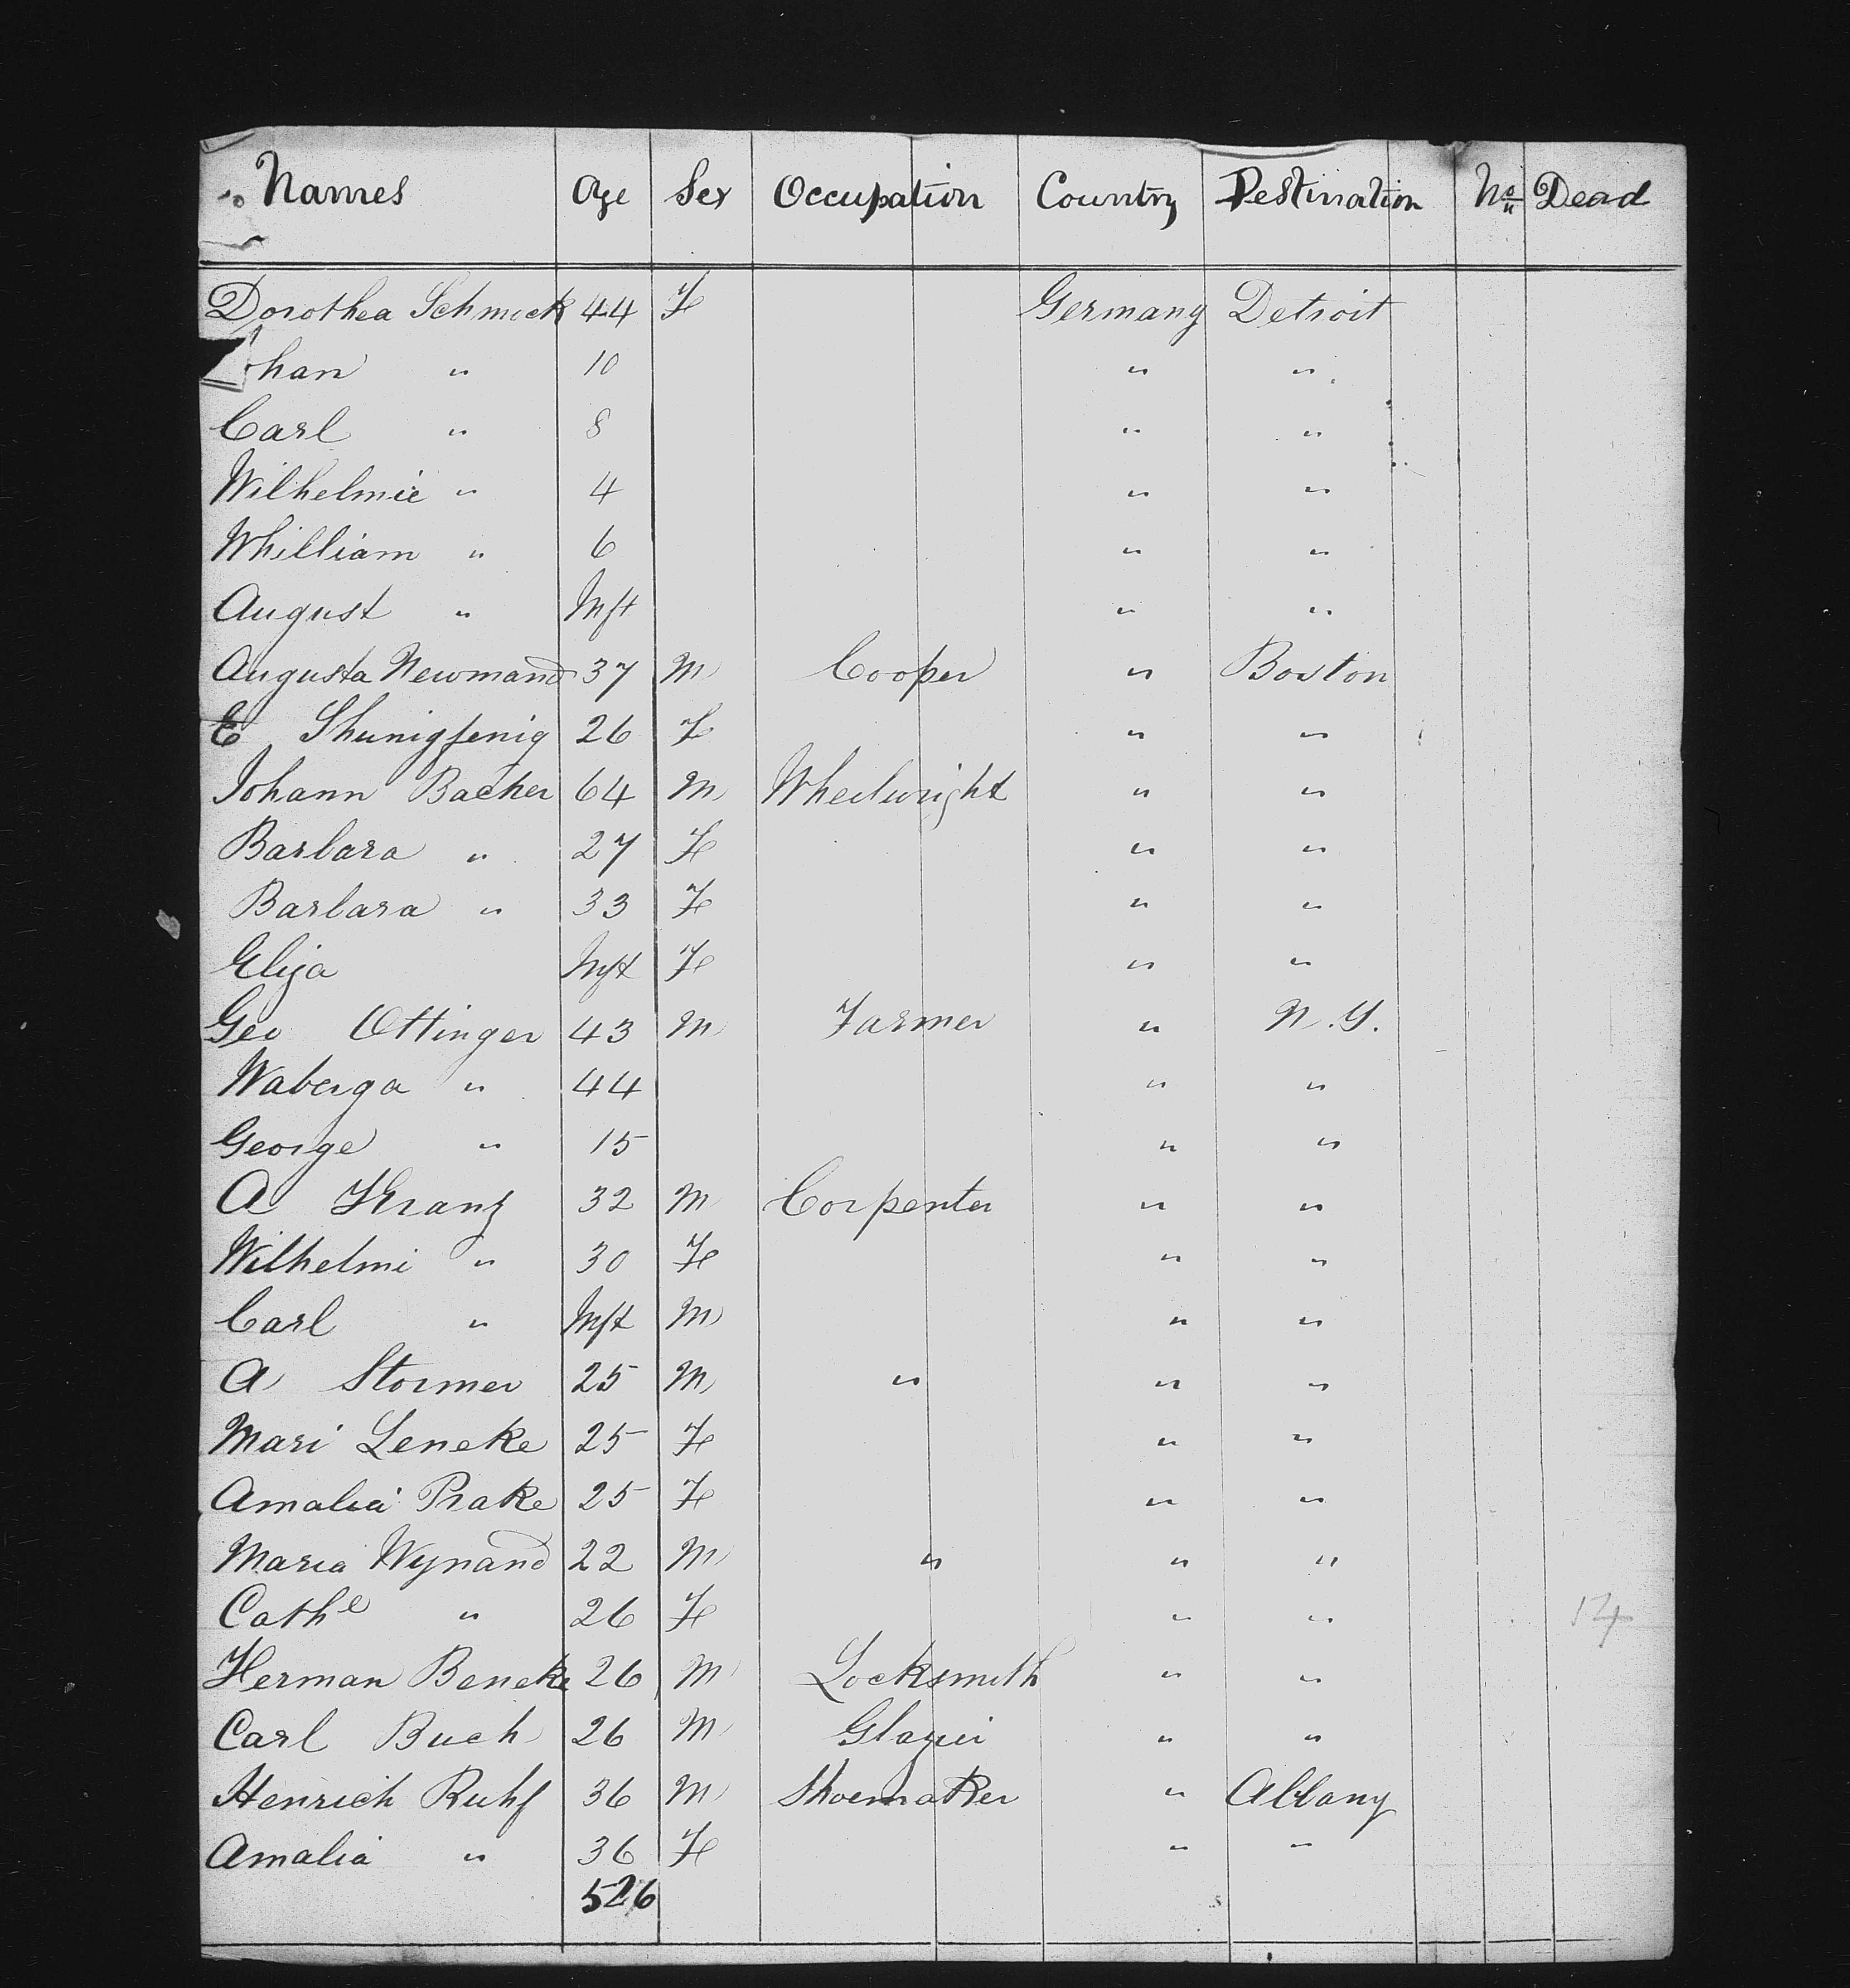 Names Age Sex Occupation Country Destination No Dead
Dorothea Schmeck 44 F Germany Detroit
han " 10 " "
Carl " 8 " "
Wilhelmie " 4 " "
Whilliam " 6 " "
August " Inft " "
Augusta Newmand 37 M Cooper " Boston
E 26 F " "
Johann Bacher 64 M Wheelwright " "
Barbara " 27 F " "
Barbara " 33 F " "
Eliza Inft F " "
Geo Ottinger 43 M Farmer " N.Y.
Waberga " 44 " "
George " 15 " "
A Kranz 32 M Corpenter " "
Wilhelmi " 30 F " "
Carl " Inft M " "
A Stormer 25 M " " "
Mari Leneke 25 F " "
Amalia Prake 25 F " "
Maria Wynand 22 M " " "
Cathe " 26 F " " 14
Herman Beneke 26 M Locksmith " "
Carl Buch 26 M Glazier " "
Henrich Ruhf 36 M Shoemaker " Albany
Amalia " 36 F " "
526